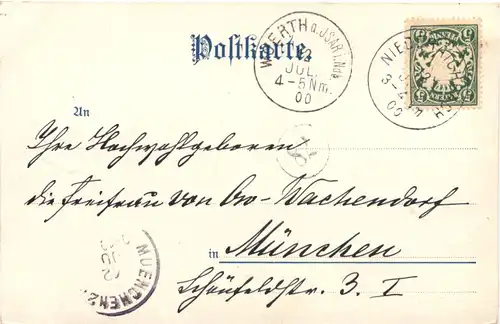 Postkarte.
WOERTH a. ISAR i. Ndb.
2
JUL.
4-5Nm.
00
NIED
3-4
00
BAYERN
5 5
5 5
An
Ihre Hochwohlgeboren
die Freifrau von Ow-Wachendorf
in München
Schönfeldstr. 3. I
MUENCHEN 2.
2
JUL